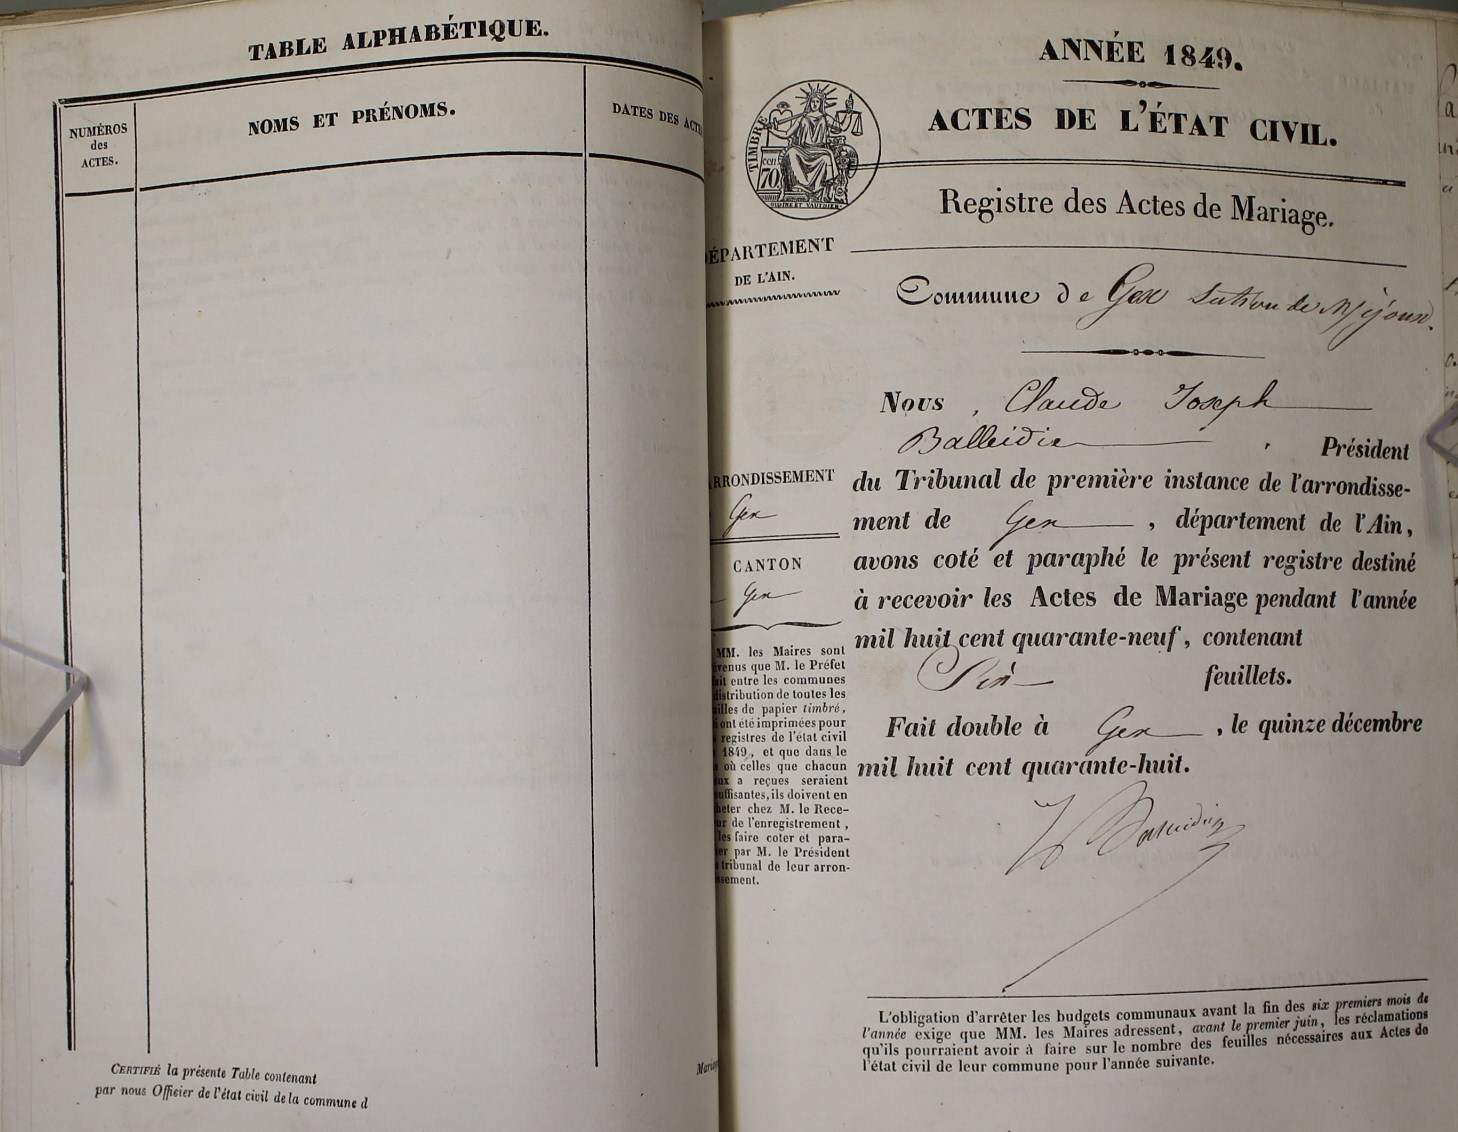 TABLE ALPHABÉTIQUE.
NUMÉROS
des
ACTES.
NOMS ET PRÉNOMS.
DATES DES ACTES
CERTIFIÉ la présente Table contenant
par nous Officier de l'état civil de la commune d
ANNÉE 1849.
ACTES DE L'ÉTAT CIVIL.
TIMBRE
cen
70.
Registre des Actes de Mariage.
ÉPARTEMENT
DE L'AIN.
Commune de Gex section de Mijoux.
Nous, Claude Joseph
Balleidier, Président
du Tribunal de première instance de l'arrondisse-
ment de Gex, département de l'Ain,
avons coté et paraphé le présent registre destiné
à recevoir les Actes de Mariage pendant l'année
mil huit cent quarante-neuf, contenant
Six feuillets.
Fait double à Gex, le quinze décembre
mil huit cent quarante-huit.
Balleidier
RRONDISSEMENT
Gex
CANTON
Gex
MM. les Maires sont
venus que M. le Préfet
ait entre les communes
distribution de toutes les
illes de papier timbré,
ont été imprimées pour
registres de l'état civil
1849, et que dans le
où celles que chacun
ux a reçues seraient
uffisantes, ils doivent en
heter chez M. le Rece-
ur de l'enregistrement,
les faire coter et para-
er par M. le Président
tribunal de leur arron-
ssement.
L'obligation d'arrêter les budgets communaux avant la fin des six premiers mois de
l'année exige que MM. les Maires adressent, avant le premier juin, les réclamations
qu'ils pourraient avoir à faire sur le nombre des feuilles nécessaires aux Actes de
l'état civil de leur commune pour l'année suivante.